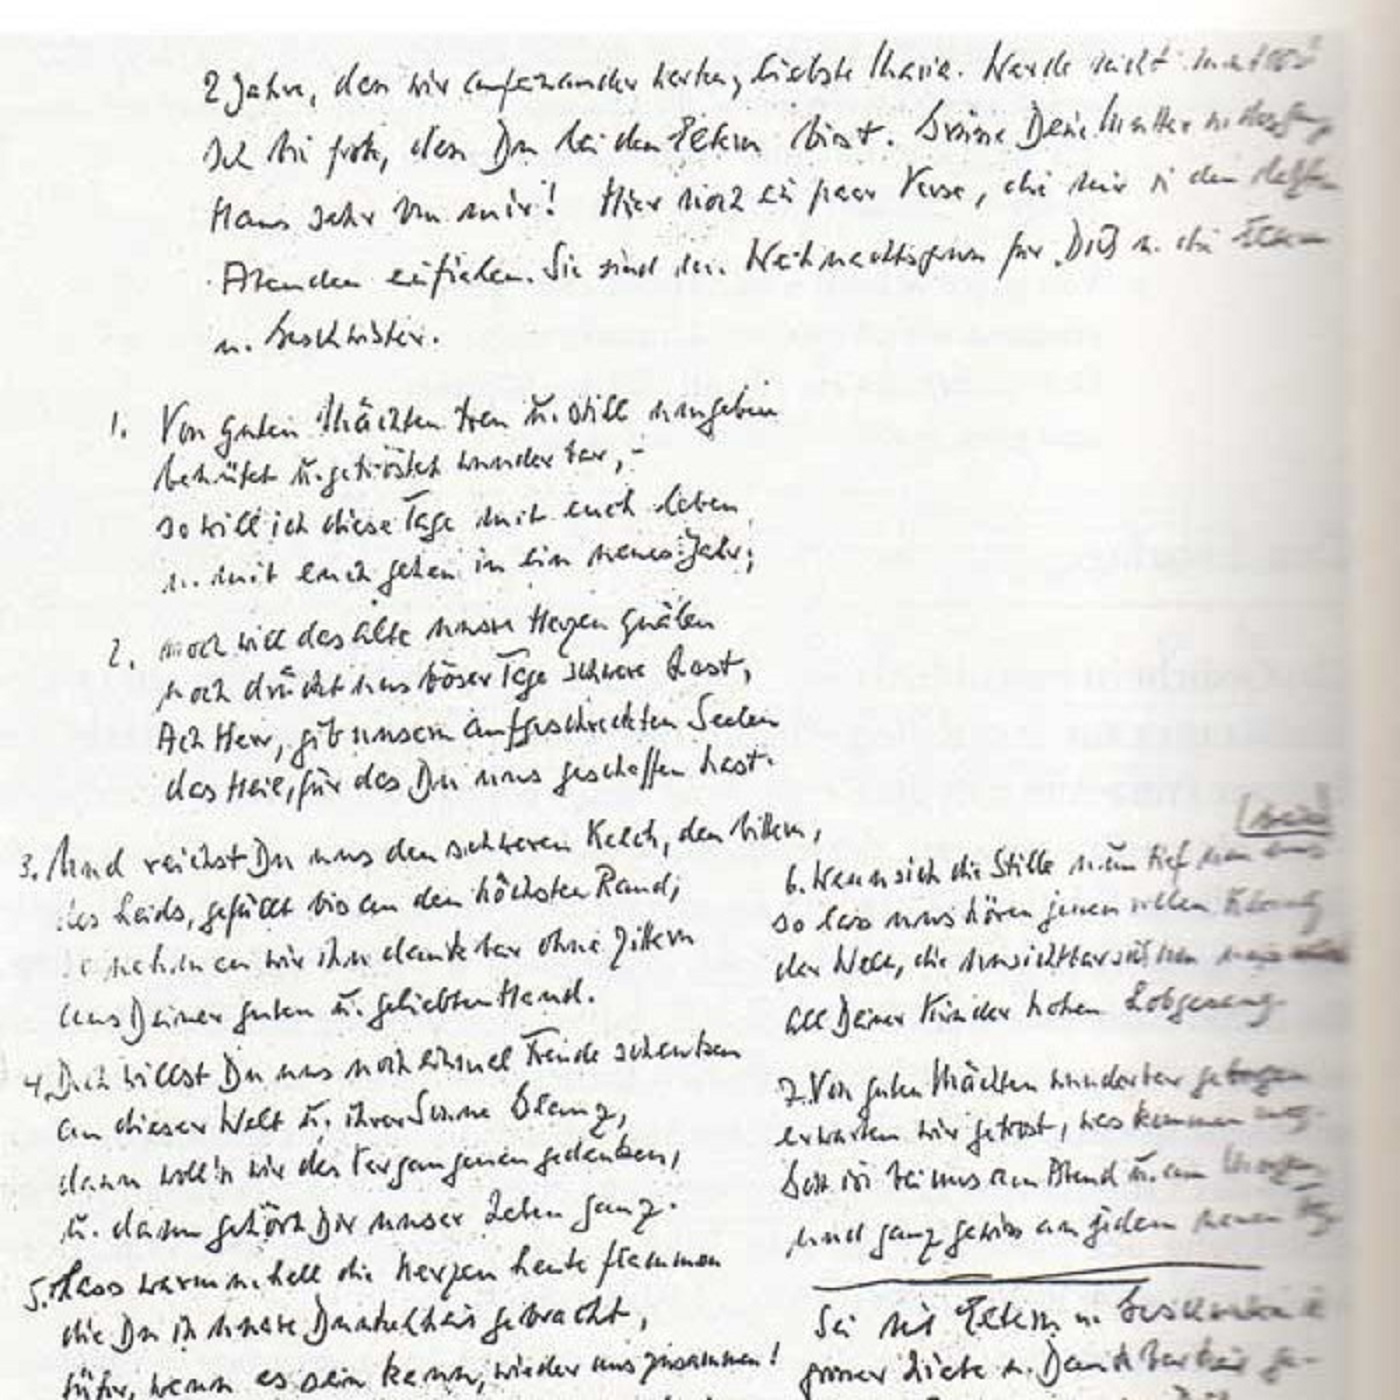 2 Jahre, dass wir aufeinander warten, liebste Maria. Werde nicht mutlos!
Ich bin froh, dass Du bei den Eltern bist. Grüsse Deine Mutter u. das ganze
Haus sehr von mir! Hier noch ein paar Verse, die mir in den letzten
Abenden einfielen. Sie sind der Weihnachtsgruss für Dich u. die Eltern
u. Geschwister.
1. Von guten Mächten treu u. still umgeben
behütet u. getröstet wunderbar, -
so will ich diese Tage mit euch leben
u. mit euch gehen in ein neues Jahr;
2. noch will das alte unsre Herzen quälen
noch drückt uns böser Tage schwere Last,
Ach Herr, gib unsern aufgescheuchten Seelen
das Heil, für das Du uns geschaffen hast.
3. Und reichst Du uns den schweren Kelch, den bittern,
des Leids, gefüllt bis an den höchsten Rand,
so nehmen wir ihn dankbar ohne Zittern
aus Deiner guten u. geliebten Hand.
4. Doch willst Du uns noch einmal Freude schenken
an dieser Welt u. ihrer Sonne Glanz,
dann woll'n wir des Vergangenen gedenken,
u. dann gehört Dir unser Leben ganz.
5. Lass warm u. hell die Kerzen heute flammen
die Du in unsre Dunkelheit gebracht,
führ, wenn es sein kann, wieder uns zusammen!
6. Wenn sich die Stille nun tief um uns
so lass uns hören jenen vollen Klang
der Welt, die unsichtbar sich um uns
all Deiner Kinder hohen Lobgesang.
7. Von guten Mächten wunderbar geborgen
erwarten wir getrost, was kommen mag.
Gott ist bei uns am Abend u. am Morgen,
und ganz gewiss an jedem neuen Tag.
Sei mit Eltern u. Geschwistern in
grosser Liebe u. Dankbarkeit